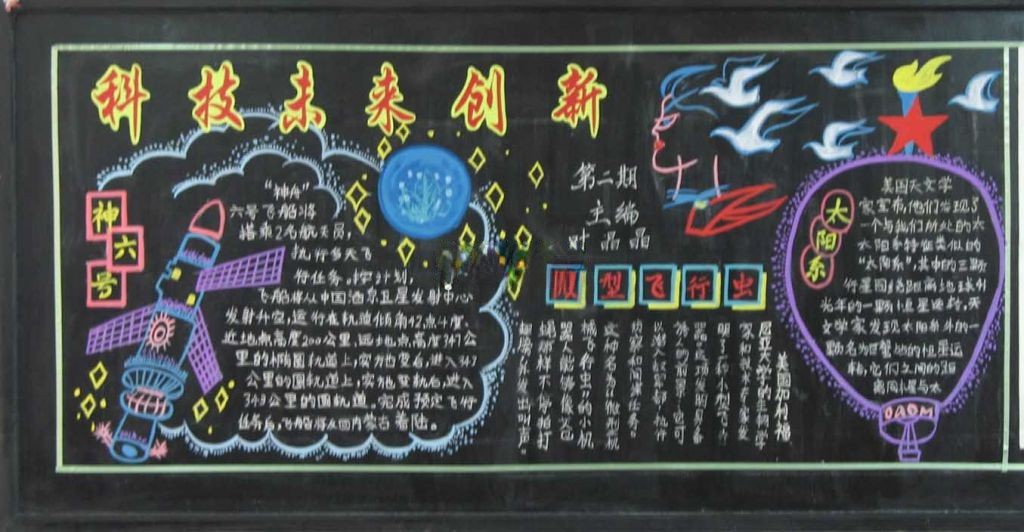 科技未来创新
神六号
“神舟”
六号飞船将
搭乘2名航天员,
执行多天飞
行任务。按计划,
飞船将从中国酒泉卫星发射中心
发射升空,运行在轨道倾角42点4度,
近地点高度200公里,远地点高度347公
里的椭圆轨道上,实施变后,进入343
公里的圆轨道上,实施变轨后,进入
343公里的圆轨道。完成预定飞行
任务后,飞船将从回内蒙古着陆。
第二期
主编
叶晶晶
型飞行虫
美国加利福
尼亚大学的生物学
家和技术专家发
明了一种小型飞行
以潜入敌军部执行
侦察和间谍任务。
这种名为“微型机
械飞行虫”的小机
器人能够像文包
蝇那样不停拍打
翅膀并发出叫声。
太阳系
美国天文学
家宣布,他们发现了
一个与我们所处的太
太阳系特征类似的
“太阳系”,其中的三颗
行星围绕距离地球41
光年的一颗恒星运转,天
文学家发现太阳系外的一
颗名为巨蟹的恒星运
转,它们之间的距
离同星与太